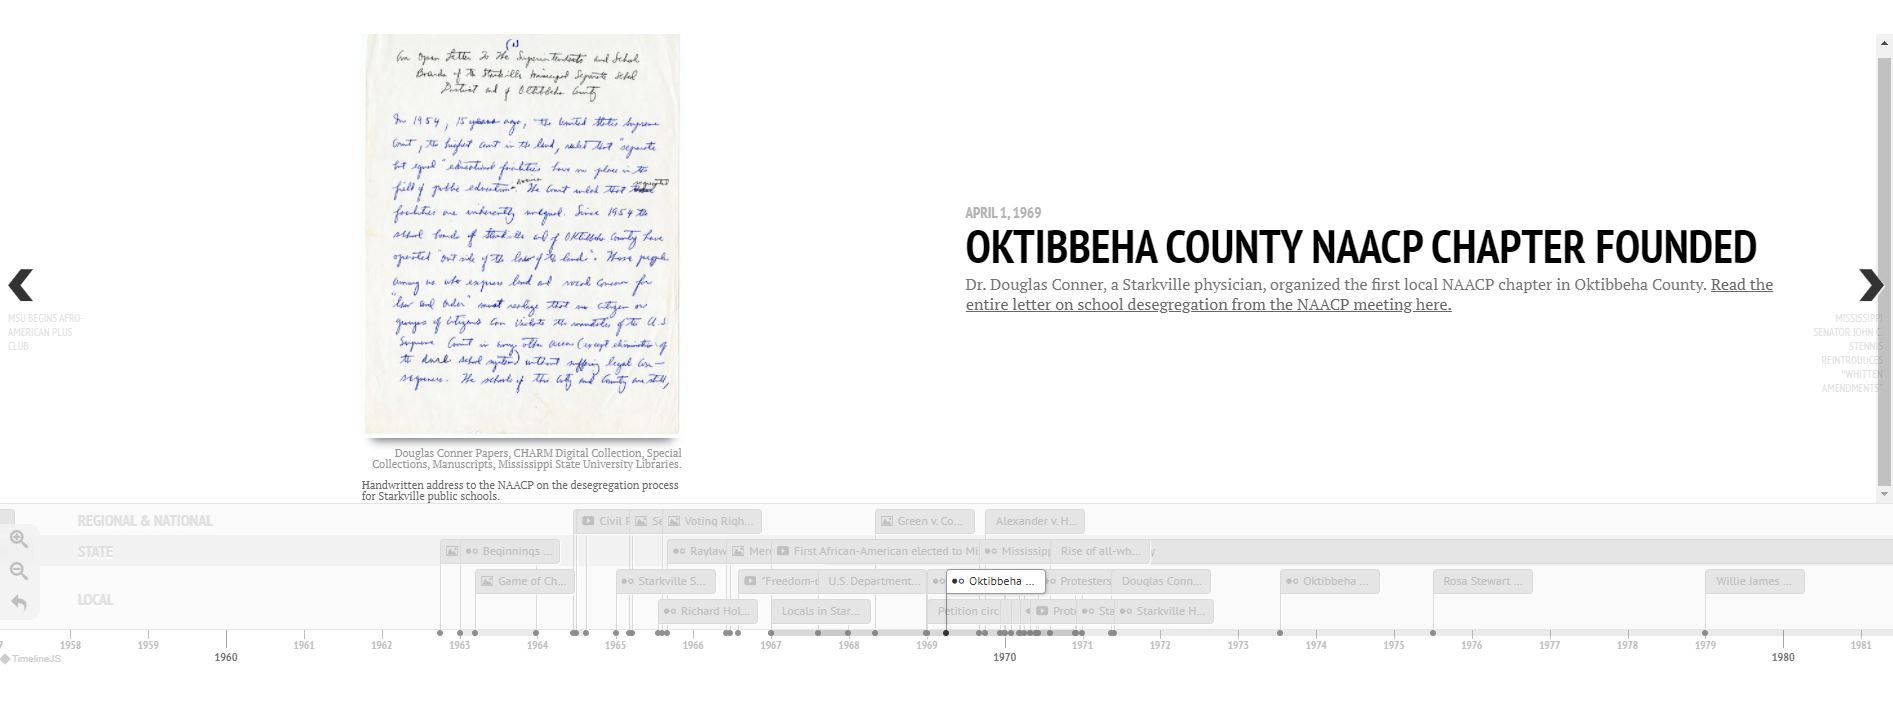 (1)
An Open Letter To The Superintendents and School
Boards of the Starkville Municipal Separate School
District and of Oktibbeha County
In 1954, 15 years ago, the United States Supreme
Court, the highest court in the land, ruled that "separate
but equal" educational facilities have no place in the
field of public education. The Court ruled that segregated
facilities are inherently unequal. Since 1954 the
school boards of Starkville and of Oktibbeha County have
operated "out side of the law of the land". Those people
among us who express loud and vocal concern for
"law and order" must realize that no citizen or
groups of citizens can violate the mandates of the U.S.
Supreme Court in many other areas (except elimination of
the dual school system) without suffering legal con-
sequences. The schools of this City and County are still,
Douglas Conner Papers, CHARM Digital Collection, Special
Collections, Manuscripts, Mississippi State University Libraries.
Handwritten address to the NAACP on the desegregation process
for Starkville public schools.
APRIL 1, 1969
OKTIBBEHA COUNTY NAACP CHAPTER FOUNDED
Dr. Douglas Conner, a Starkville physician, organized the first local NAACP chapter in Oktibbeha County. Read the
entire letter on school desegregation from the NAACP meeting here.
MSU BEGINS AFRO-
AMERICAN PLUS
CLUB
MISSISSIPPI
SENATOR JOHN C.
STENNIS
REINTRODUCES
"WHITTEN
AMENDMENTS"
REGIONAL & NATIONAL
Civil R
Se
Voting Righ...
Green v. Co...
Alexander v. H...
STATE
Beginnings ...
Raylaw
Mer
First African-American elected to Mi
Mississipp
Rise of all-wh...
y
Game of Ch...
Starkville S...
"Freedom-o
U.S. Department...
Oktibbeha ...
Protesters
Douglas Conn...
Oktibbeha ...
Rosa Stewart ...
Willie James ...
LOCAL
Richard Hol...
Locals in Star...
Petition circ
Prote
Sta
Starkville H...
7 1958 1959 1960 1961 1962 1963 1964 1965 1966 1967 1968 1969 1970 1971 1972 1973 1974 1975 1976 1977 1978 1979 1980 1981
TimelineJS